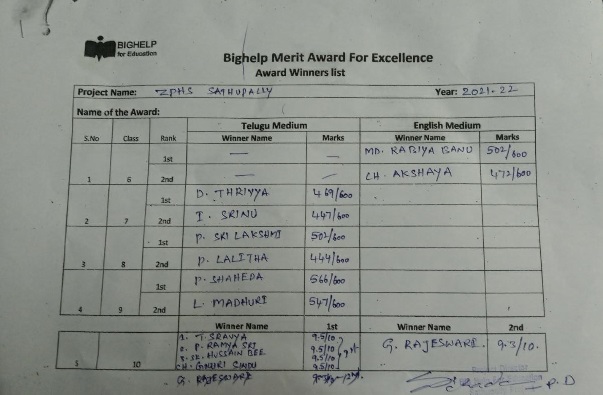 BIGHELP
for Education
Bighelp Merit Award For Excellence
Award Winners list
Project Name: ZPHS SATHUPALLY Year: 2021-22
Name of the Award:
Telugu Medium English Medium
S.No Class Rank Winner Name Marks Winner Name Marks
1st — — MD. RABIYA BANU 502/600
1 6 2nd — — CH. AKSHAYA 472/600
1st D. THRIYYA 469/600
2 7 2nd I. SRINU 447/600
1st P. SRI LAKSHMI 502/600
3 8 2nd P. LALITHA 444/600
1st P. SHAHEDA 566/600
4 9 2nd L. MADHURI 547/600
Winner Name 1st Winner Name 2nd
1. T. SRAVYA 9.5/10
2. P. RAMYA SRI 9.5/10
5 10 3. SK. HUSSAIN BEE 9.5/10 1st G. RAJESWARI. 9.3/10.
CH. GINJURI SINDU 9.5/10
G. RAJESWARI
P.D